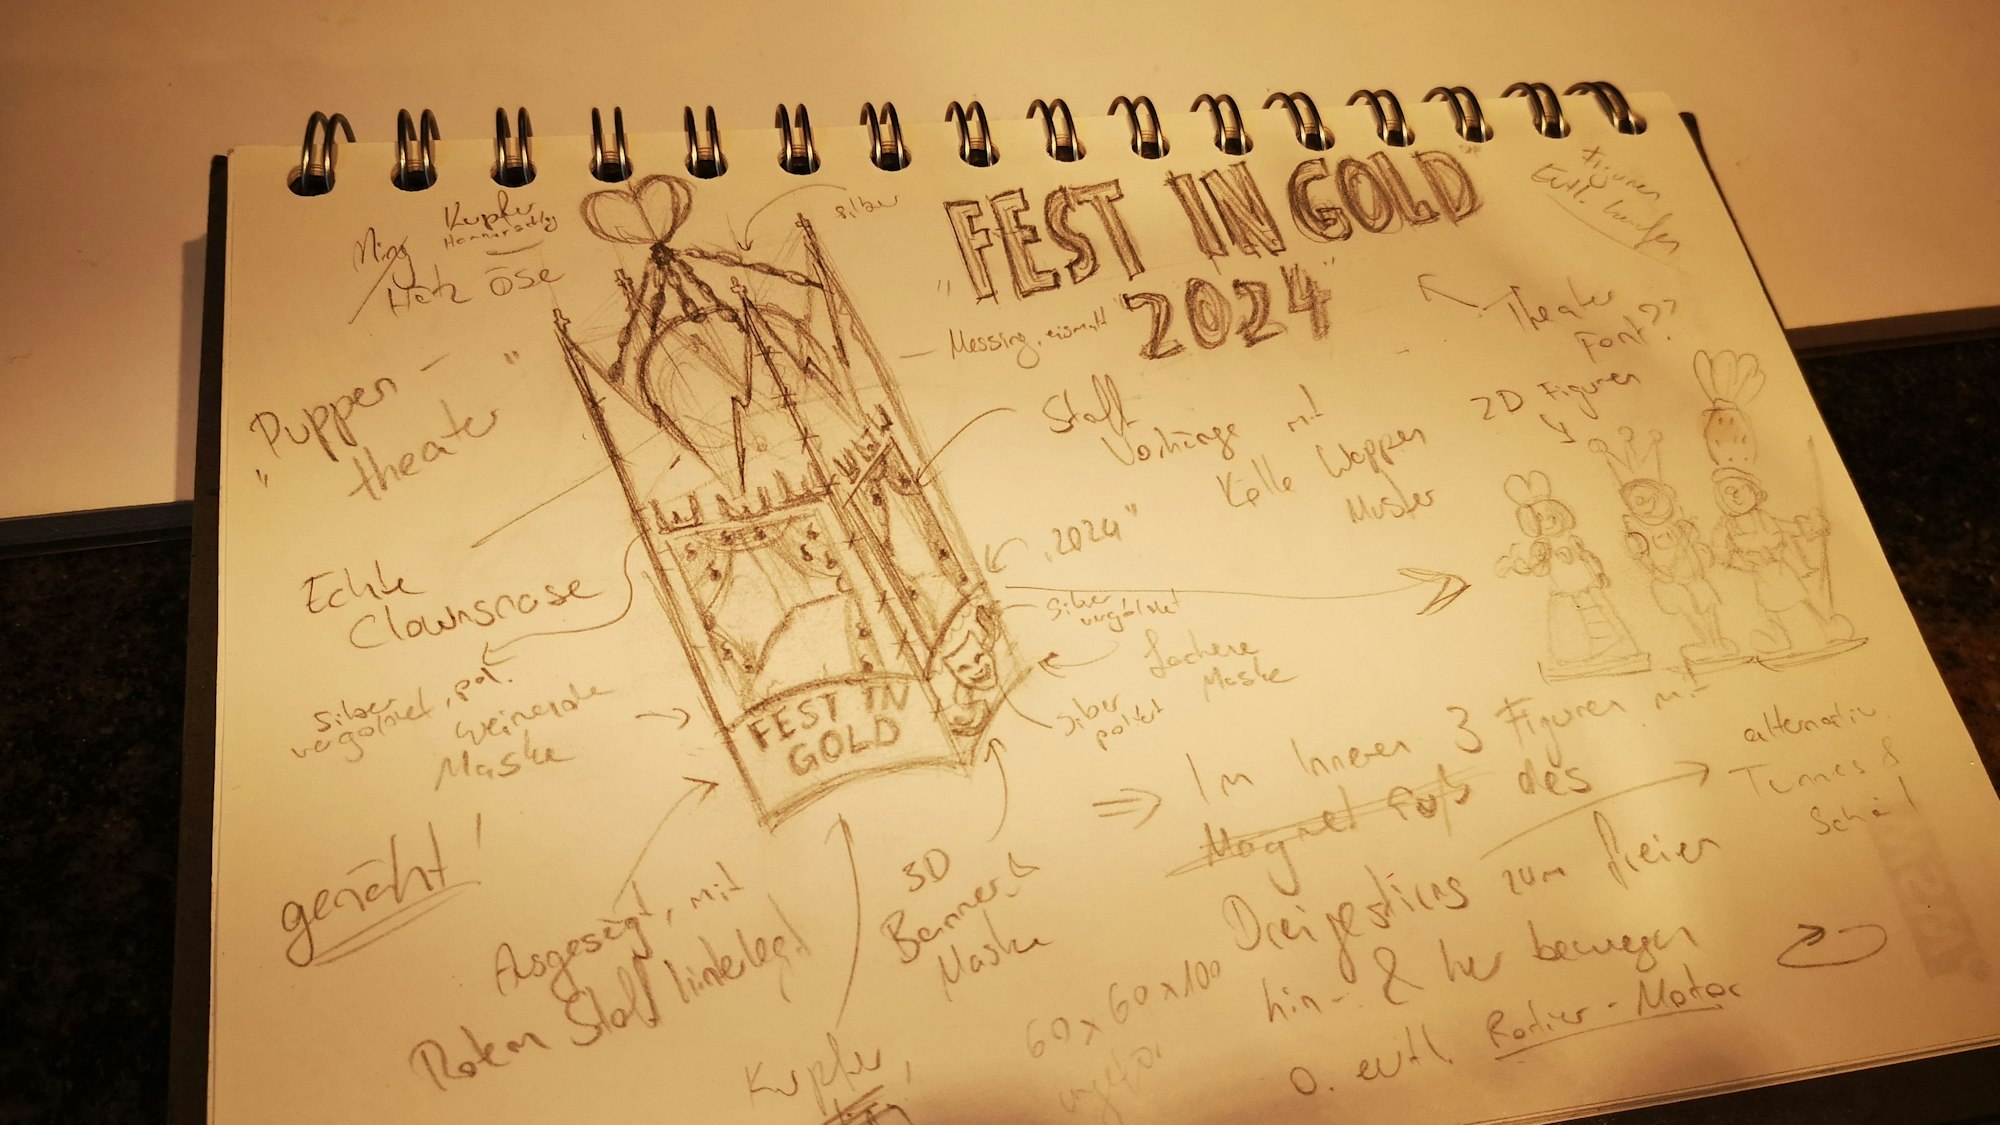 "FEST IN GOLD
2024"
Kupfer
Herz Öse
silber
Figuren
Evtl.
Theater
Font??
Messing,
"Puppen-
theater"
Stoff
Vorhänge mit
Kölle Wappen
Muster
2D Figuren
"2024"
Echte
Clownsnase
silber
vergoldet, pol.
weinende
Maske
silber
vergoldet
Lachene
Maske
silber
poliert
FEST IN
GOLD
genäht!
Ausgesägt, mit
Rotem Stoff hinterlegt
3D
Banner &
Maske
Kupfer
60x60x100
ungefähr
⇒ Im Inneren 3 Figuren mit
Magnet Fuß des
Dreigestirns zum freien
hin- & her bewegen
o. evtl. Radier-Motor
alternativ
Tünnes &
Schäl